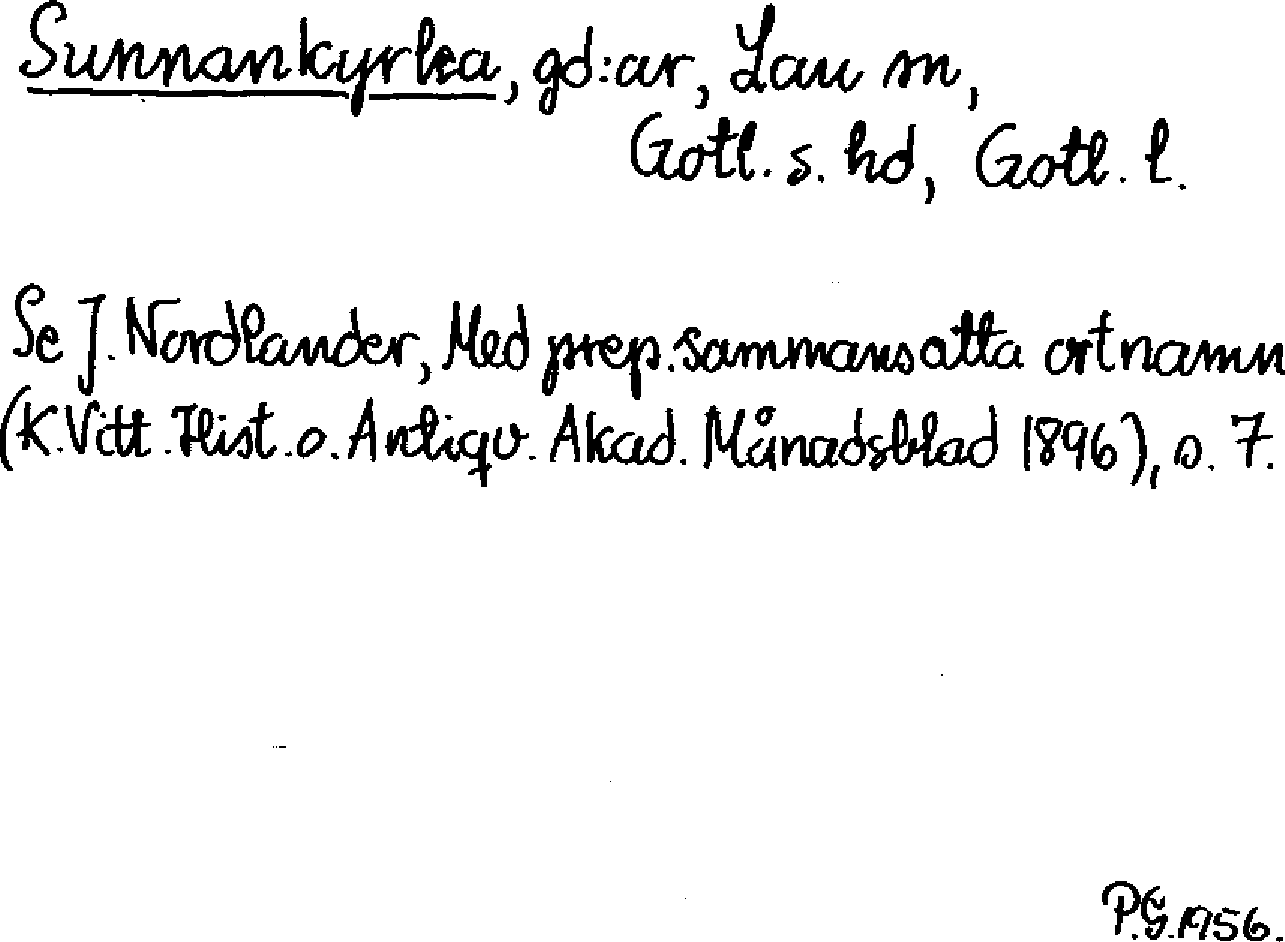 Sunnankyrka, gd:ar, Lau sn,
Gotl. s. hd, Gotl. l.
Se J. Nordlander, Med prep. sammansatta ortnamn
(K. Vitt. Hist. o. Antiqv. Akad. Månadsblad 1896), s. 7.
P.G. 1956.